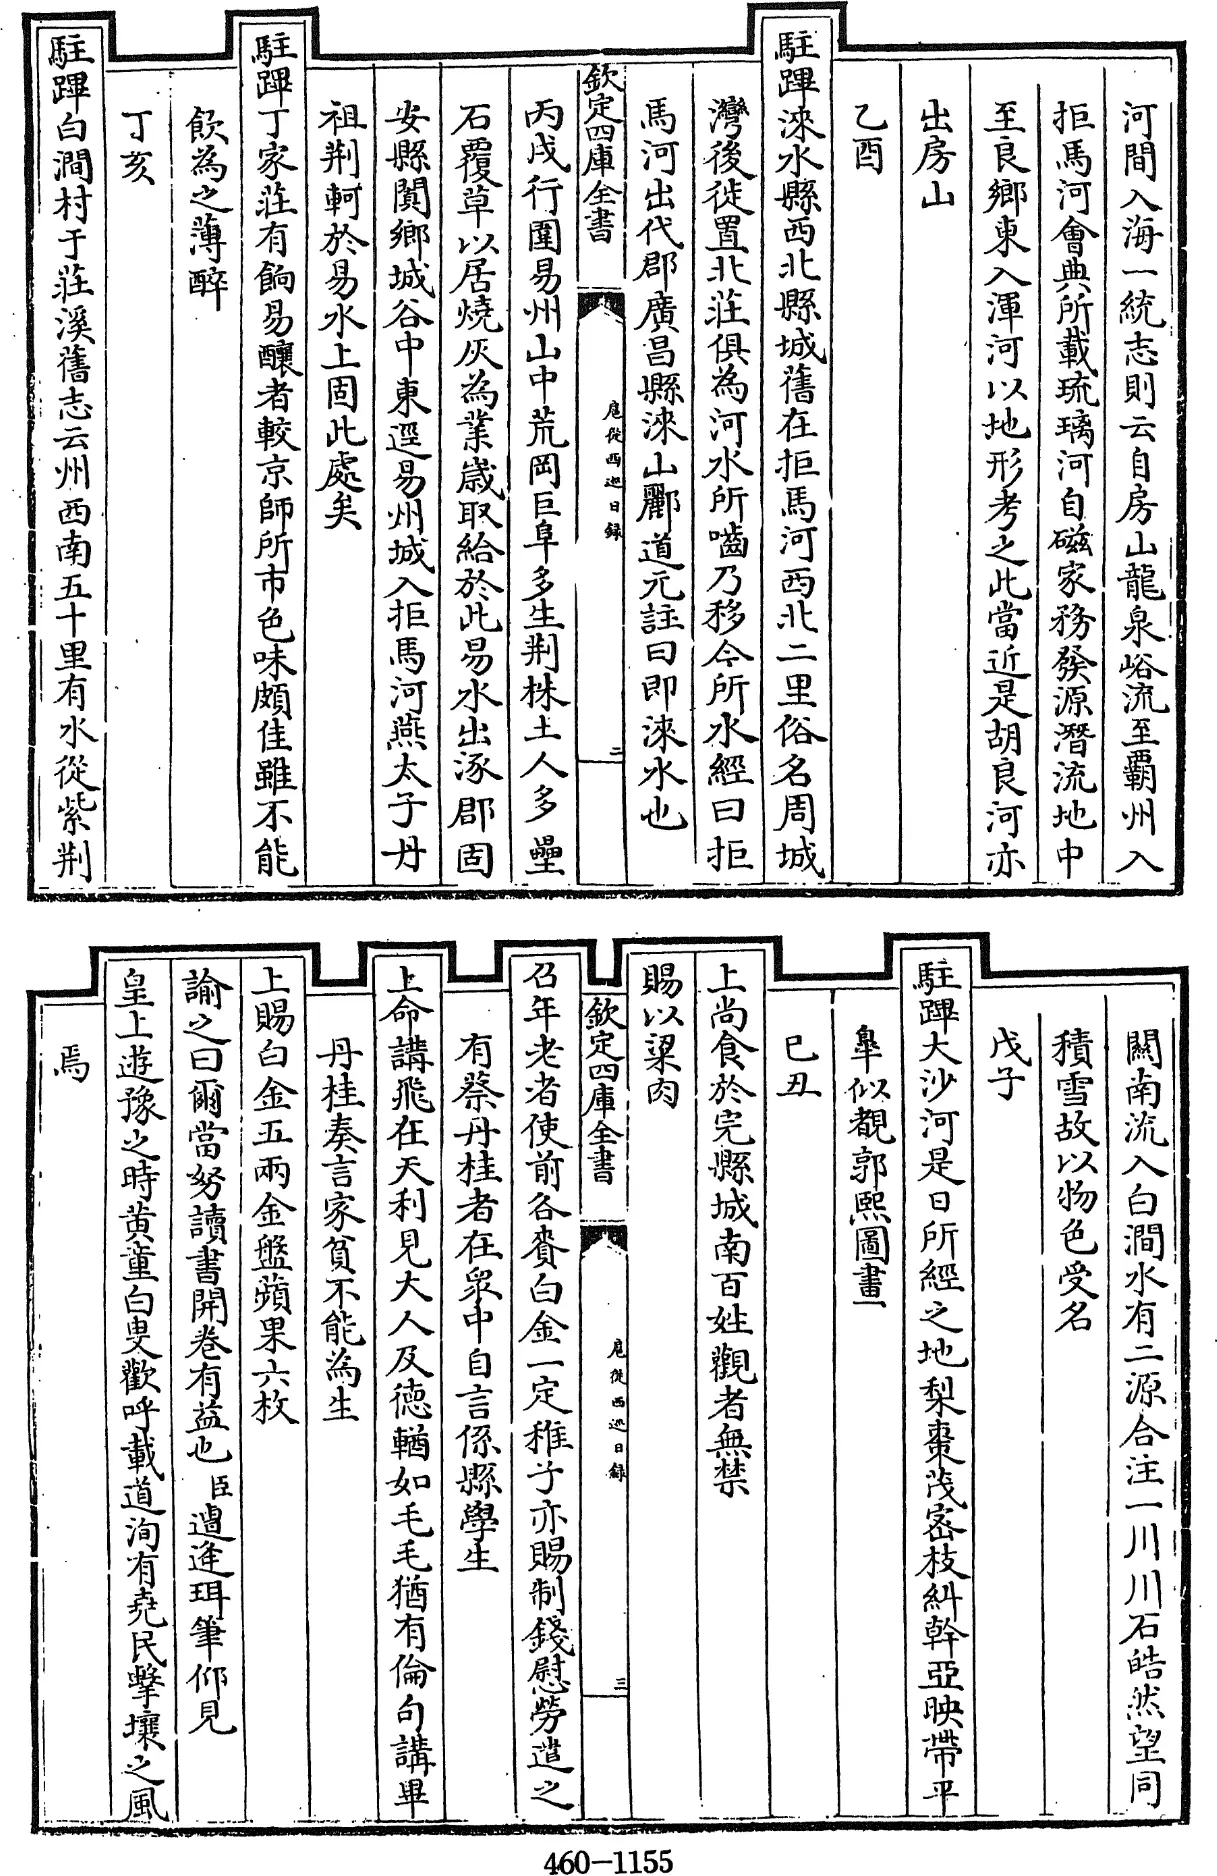 河間入海一統志則云自房山龍泉峪流至霸州入
拒馬河會典所載琉璃河自磁家務發源潛流地中
至良鄉東入渾河以地形考之此當近是胡良河亦
出房山
乙酉
駐蹕淶水縣西北縣城舊在拒馬河西北二里俗名周城
灣後徙置北莊俱為河水所嚙乃移今所水經曰拒
馬河出代郡廣昌縣淶山酈道元註曰即淶水也
欽定四庫全書
扈從西巡日錄
二
丙戌行圍易州山中荒岡巨阜多生荆株土人多壘
石覆草以居燒灰為業歲取給於此易水出涿郡固
安縣閴鄉城谷中東逕易州城入拒馬河燕太子丹
祖荆軻於易水上固此處矣
駐蹕丁家莊有餉易釀者較京師所市色味頗佳雖不能
飲為之薄醉
丁亥
駐蹕白澗村于莊溪舊志云州西南五十里有水從紫荆
關南流入白澗水有二源合注一川川石皓然望同
積雪故以物色受名
戊子
駐蹕大沙河是日所經之地梨棗茂密枝糾幹亞映帶平
皋似覩郭熙圖畫
己丑
上尚食於完縣城南百姓觀者無禁
賜以粱肉
欽定四庫全書
扈從西巡日錄
三
召年老者使前各賚白金一定稚子亦賜制錢慰勞遣之
有蔡丹桂者在衆中自言係縣學生
上命講飛在天利見大人及德輶如毛毛猶有倫句講畢
丹桂奏言家貧不能為生
上賜白金五兩金盤蘋果六枚
諭之曰爾當努讀書開卷有益也臣遭逢珥筆仰見
皇上遊豫之時黃童白叟歡呼載道洵有堯民擊壤之風
焉
460-1155